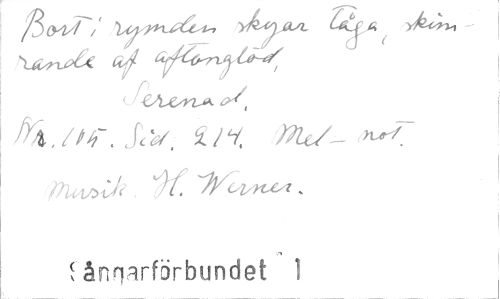 Bort i rymden skyar tåga, skim-
rande af aftonglöd,
Serenad.
Nr. 105. Sid. 214. Mel-not.
Musik. H. Werner.
Sångarförbundet 1